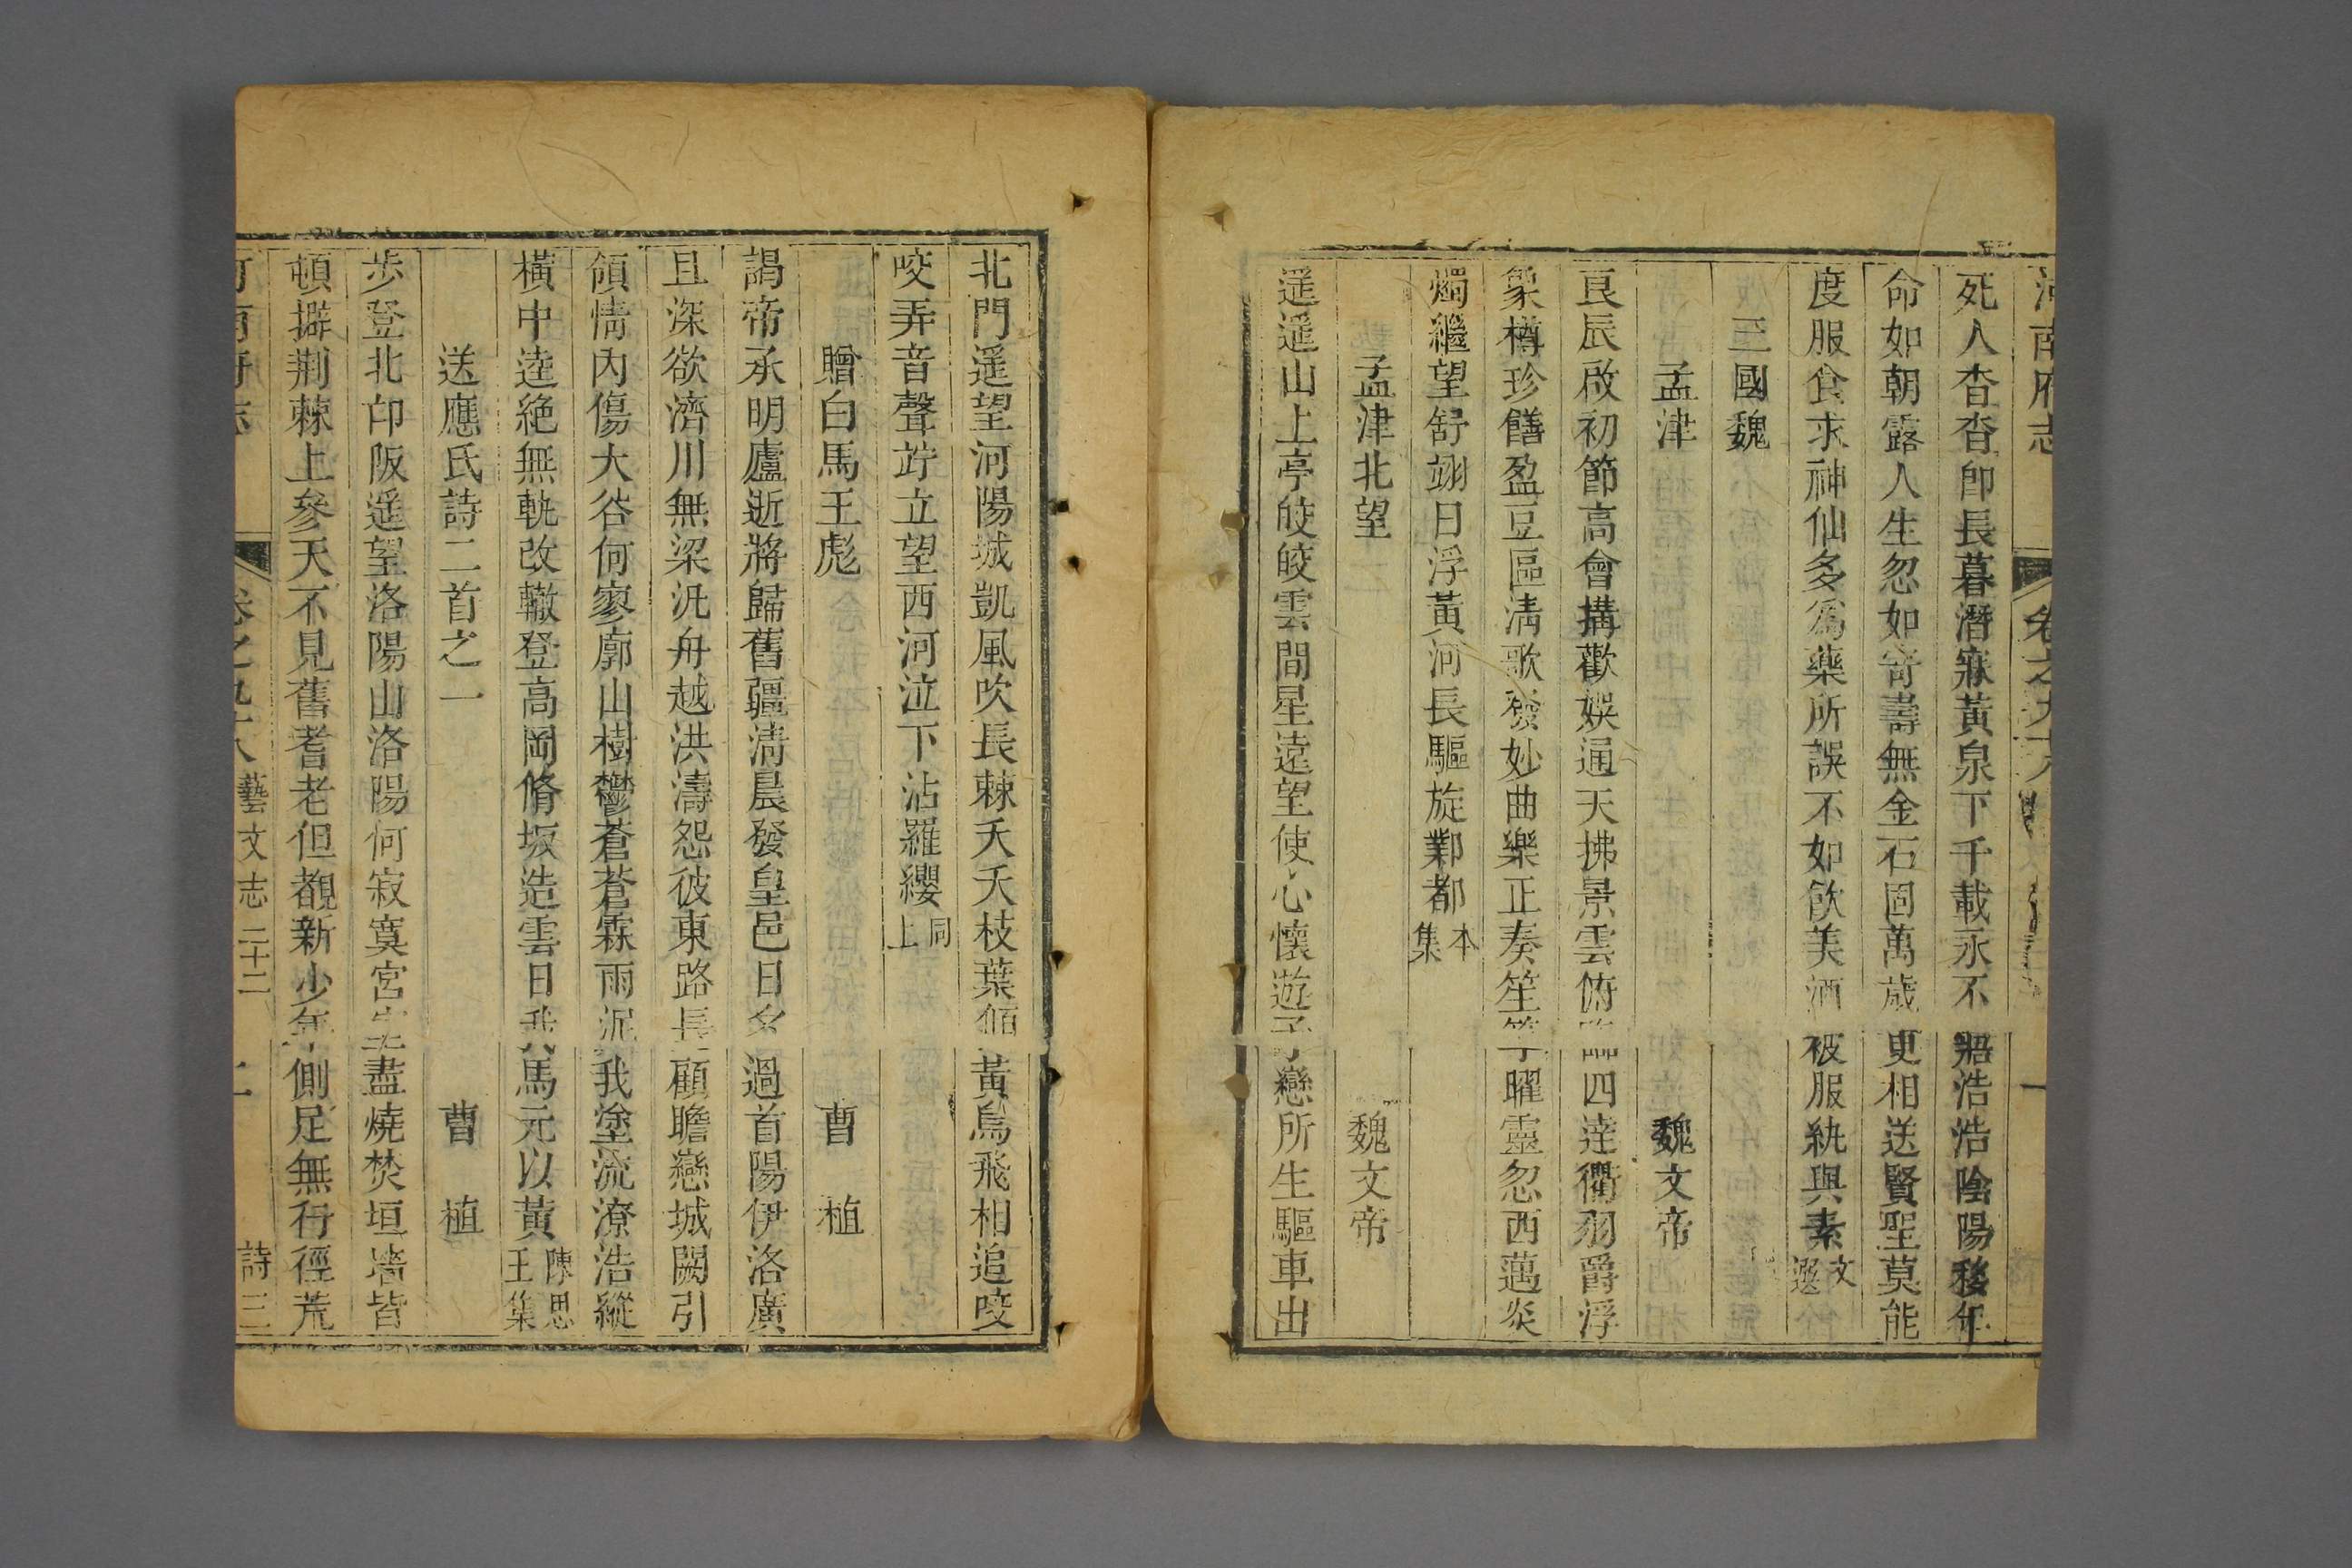 河南府志
卷之九十八
死人杳杳卽長暮潛寐黃泉下千載永不寤浩浩陰陽移年
命如朝露人生忽如寄壽無金石固萬歲更相送賢聖莫能
度服食求神仙多爲藥所誤不如飲美酒被服紈與素文選
三國魏
孟津 魏文帝
良辰啟初節高會搆歡娛通天拂景雲俯臨四逵衢羽爵浮
象樽珍饍盈豆區淸歌發妙曲樂正奏笙竽曜靈忽西邁炎
燭繼望舒翊日浮黃河長驅旋鄴都本集
孟津北望 魏文帝
遥遥山上亭皎皎雲間星遠望使心懷遊子戀所生驅車出
北門遥望河陽城凱風吹長棘夭夭枝葉傾黃鳥飛相追咬
咬弄音聲竚立望西河泣下沾羅纓同上
贈白馬王彪 曹植
謁帝承明廬逝將歸舊疆淸晨發皇邑日夕過首陽伊洛廣
且深欲濟川無梁汎舟越洪濤怨彼東路長顧瞻戀城闕引
領情內傷大谷何寥廓山樹鬱蒼蒼霖雨泥我塗流潦浩縱
橫中逵絶無軌改轍登高岡脩坂造雲日我馬元以黃陳思王集
送應氏詩二首之一 曹植
步登北印阪遥望洛陽山洛陽何寂寞宮室盡燒焚垣墻皆
頓擗荆棘上參天不見舊耆老但覩新少年側足無行徑荒
河南府志
卷之九十八 藝文志二十二 詩三